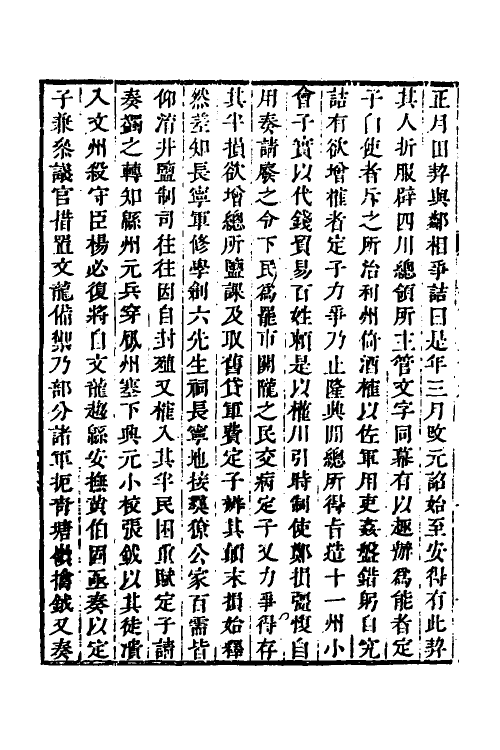 正月田契與鄰相爭詰曰是年三月改元詔始至安得有此契
其人折服辟四川總領所主管文字同幕有以趣辦爲能者定
子白使者斥之所治利州倚酒榷以佐軍用吏姦盤錯躬自究
詰有欲增榷者定子力爭乃止隆興閒總所得旨造十一州小
會子實以代錢貿易百姓賴是以權川引時制使鄭損彊愎自
用奏請廢之令下民爲罷市關隴之民交病定子又力爭得存
其半損欲增總所鹽課及取舊貸軍費定子辨其顛末損始釋
然差知長寧軍修學創六先生祠長寧地接蠻獠公家百需皆
仰淯井鹽制司往往因自封殖又榷入其半民困重賦定子請
奏蠲之轉知緜州元兵穿鳳州塞下興元小校張鉞以其徒潰
入文州殺守臣楊必復將自文龍趨緜安撫黃伯固亟奏以定
子兼叅議官措置文龍備禦乃部分諸軍扼青塘嶺擒鉞又奏